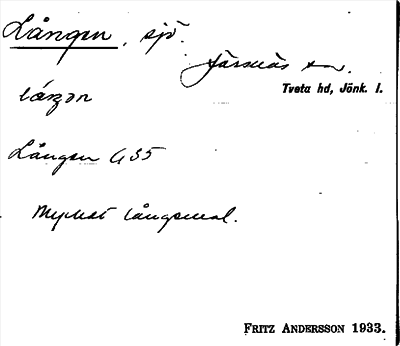 Lången, sjö.
Järsnäs sn.
Tveta hd, Jönk. l.
låŋən
Lången G 35
Mycket långsmal.
FRITZ ANDERSSON 1933.